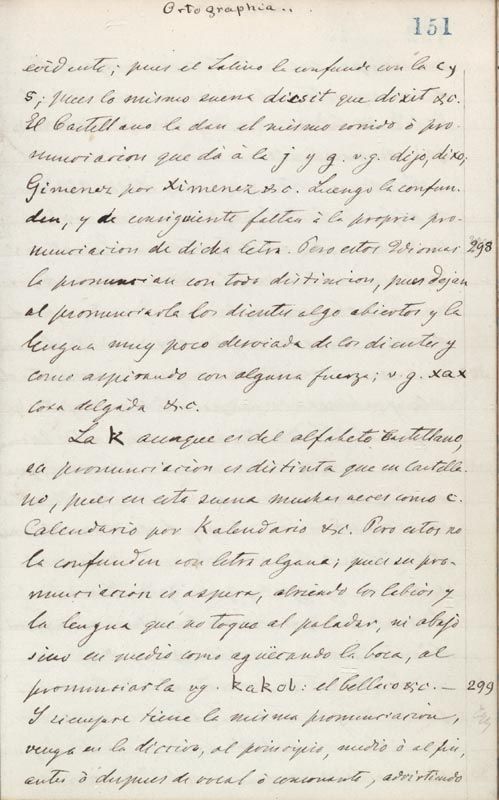 Ortographia..
151
evidente; pues el Latino la confunde con la c y
s; pues lo mismo suena dicsit que dixit &c.
El Castellano la dan el mismo sonido ò pro-
nunciacion que dà à la j y g. v.g. dijo, dixo;
Gimenez por Ximenez &c. Luego la confun-
den, y de consiguiente faltan à la propria pro-
nunciacion de dicha letra. Pero estos Ydiomas 298
la pronuncian con toda distincion, pues dejan
al pronunciarla los dientes algo abiertos y la
lengua muy poco desviada de los dientes y
como aspirando con alguna fuerza; v.g. xax
cosa delgada &c.
La K aunque es del alfabeto Castellano,
su pronunciacion es distinta que en Castella-
no, pues en esta suena muchas veces como c.
Calendario por Kalendario &c. Pero estos no
la confunden con letra alguna; pues su pro-
nunciacion es aspera, abriendo los labios y
la lengua que no toque al paladar, ni abajo
sino en medio como agüecando la boca, al
pronunciarla vg. kakob: el bellaco &c. — 299
Y siempre tiene la misma pronunciacion,
venga en la diccion, al principio, medio ò al fin,
antes ò despues de vocal ò consonante, advirtiendo